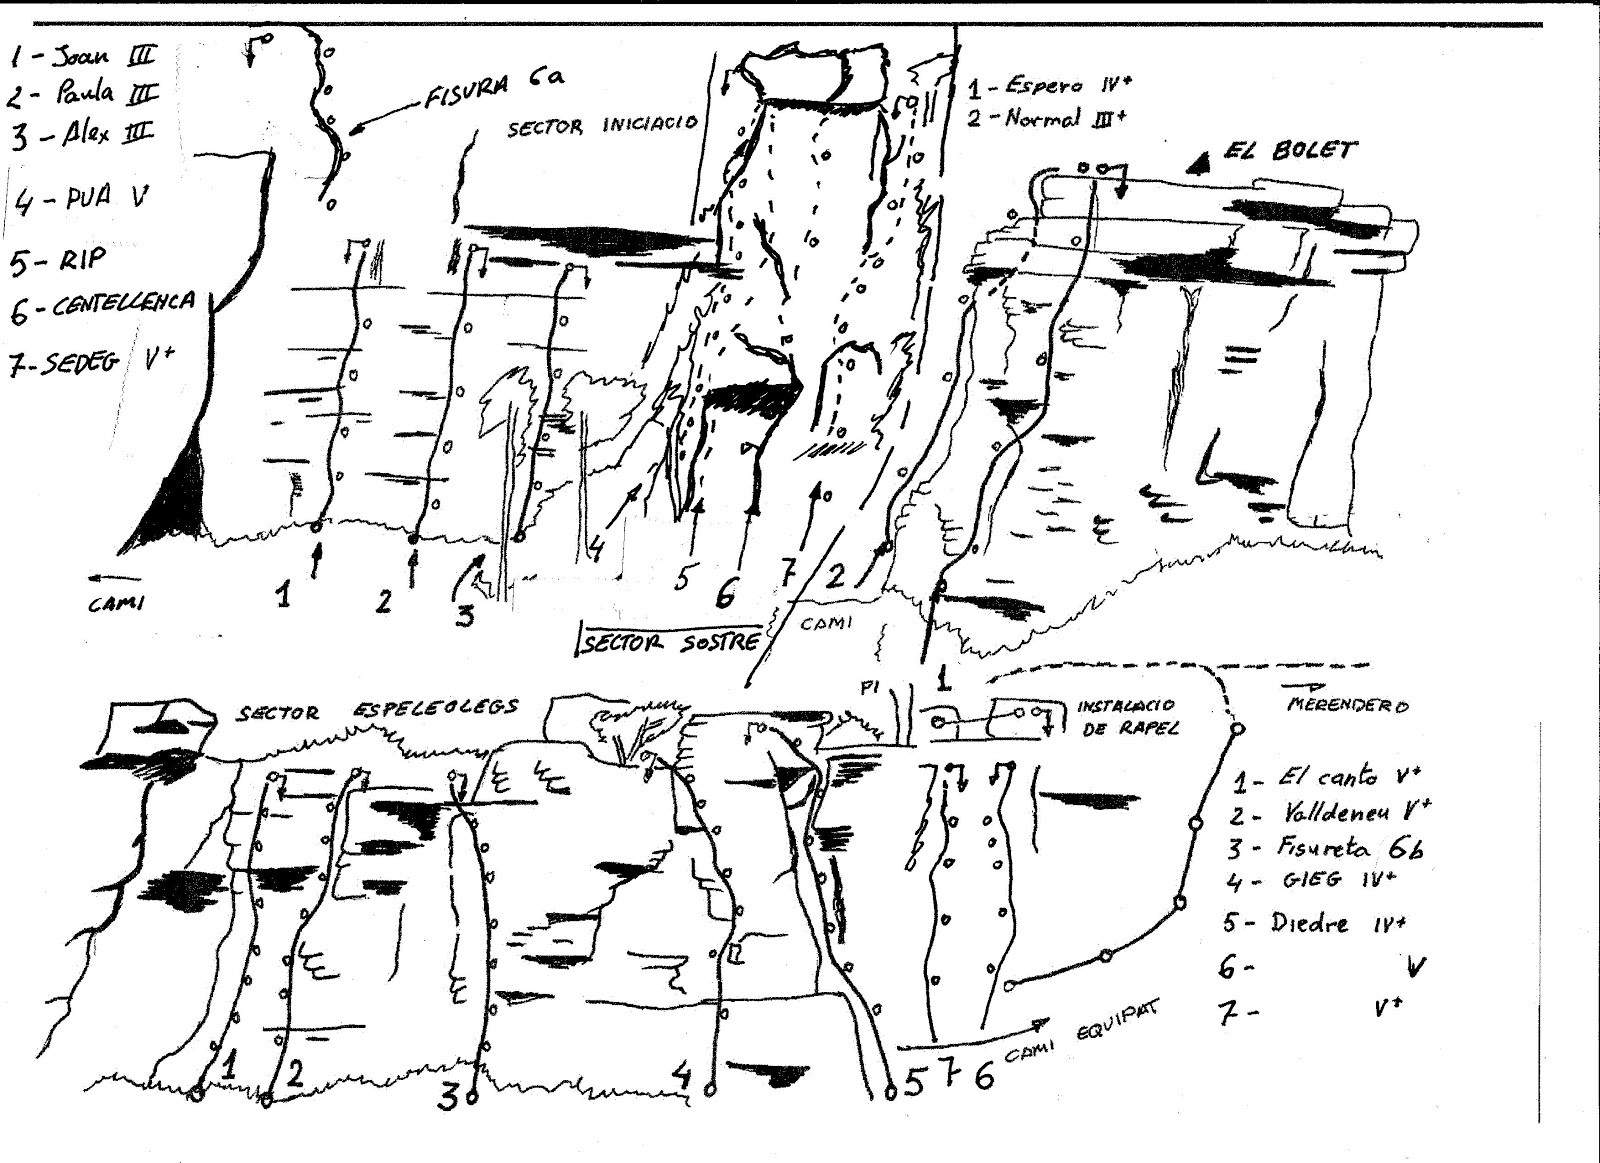 1 - Joan III
2 - Paula III
3 - Alex III
4 - PUA V
5 - RIP
6 - CENTELLENCA
7 - SEDEG V+
FISURA 6a
SECTOR INICIACIO
1 - Espero IV+
2 - Normal III+
EL BOLET
CAMI
1
2
3
4
5
6
7
2
1
CAMI
SECTOR SOSTRE
SECTOR ESPELEOLEGS
PI
INSTALACIO
DE RAPEL
MERENDERO
1 - El canto V+
2 - Valldeneu V+
3 - Fisureta 6b
4 - GIEG IV+
5 - Diedre IV+
6 - V
7 - V+
CAMI EQUIPAT
1
2
3
4
5
7
6